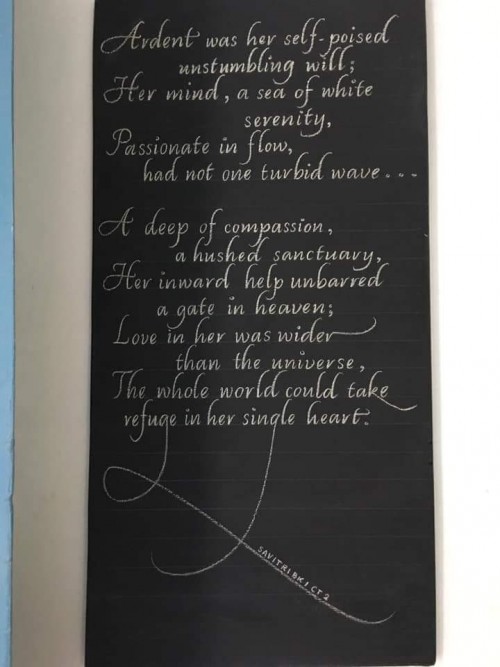 Ardent was her self-poised
unstumbling will;
Her mind, a sea of white
serenity,
Passionate in flow,
had not one turbid wave...
A deep of compassion,
a hushed sanctuary,
Her inward help unbarred
a gate in heaven;
Love in her was wider
than the universe,
The whole world could take
refuge in her single heart.
SAVITRI BK 1 CT 2